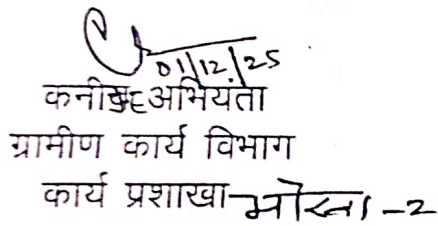 01/12/25
कनीय अभियंता
ग्रामीण कार्य विभाग
कार्य प्रशाखा -2